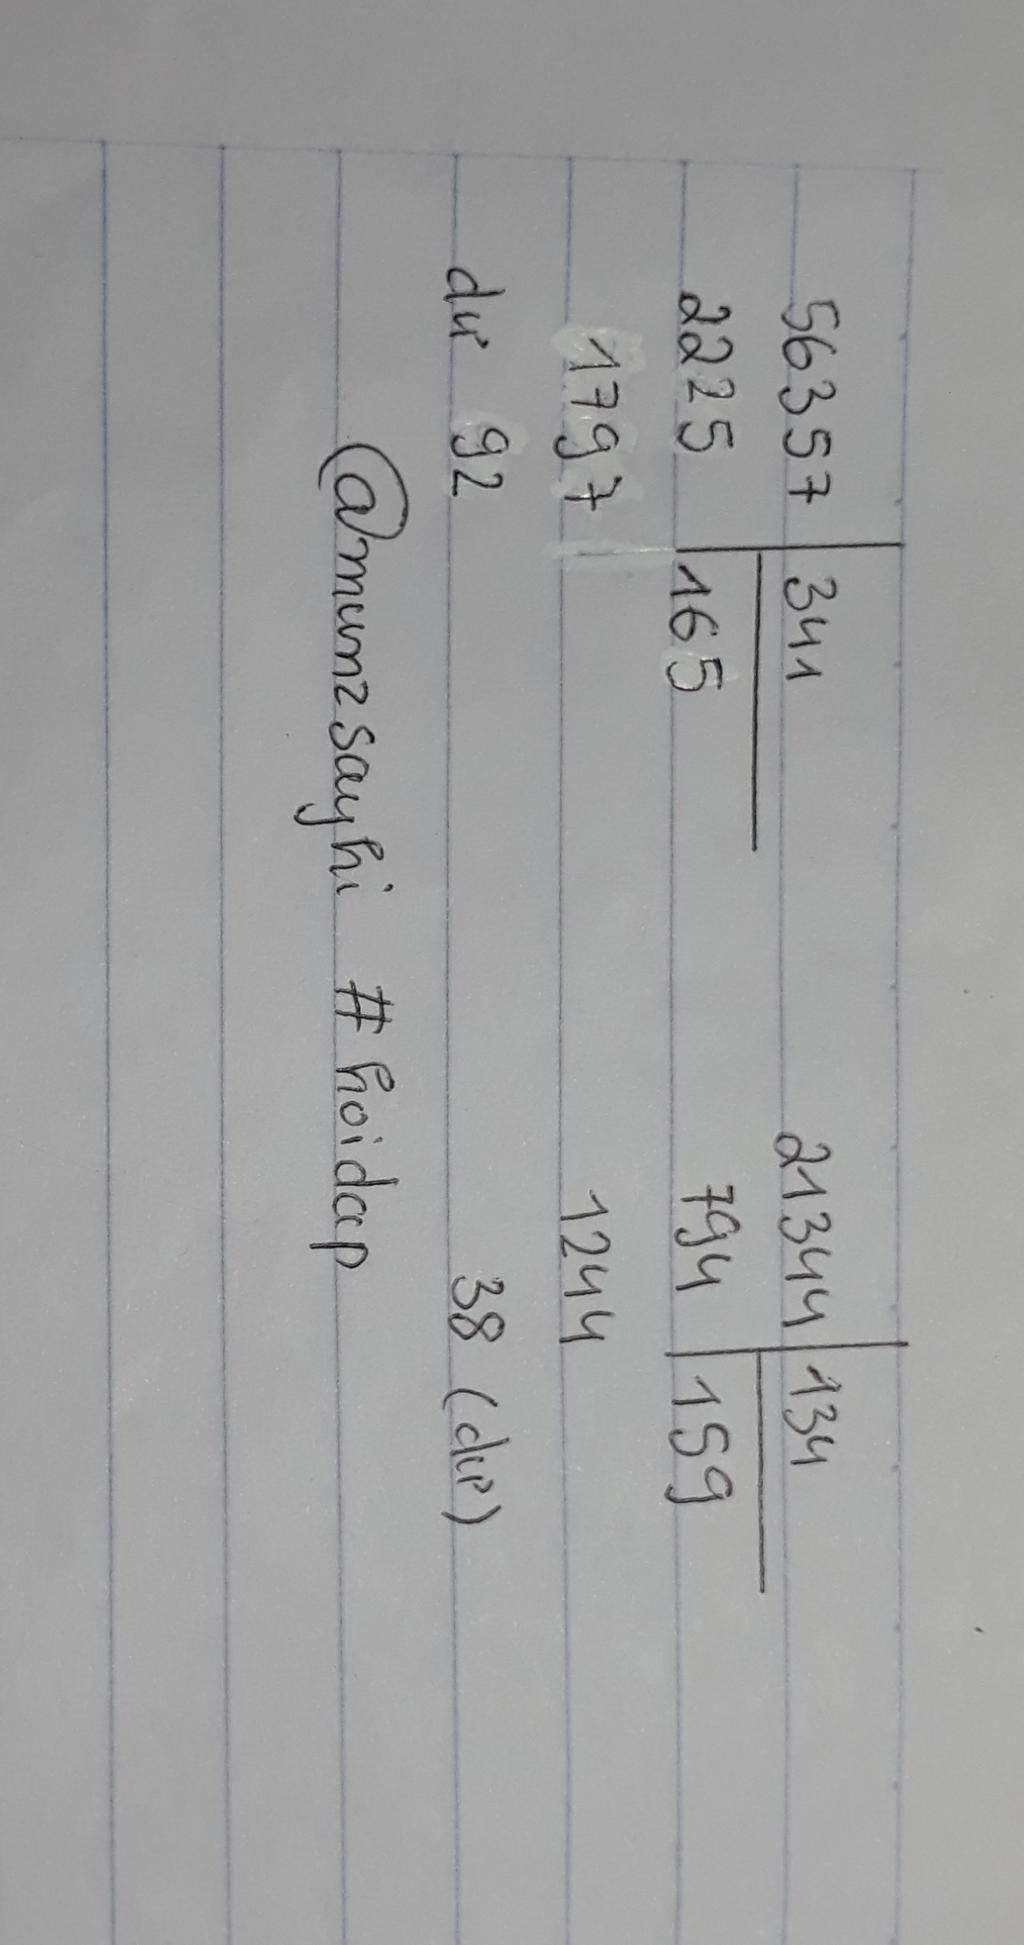 56357 | 341 21344 | 134
2225 | 165 794 | 159
1797 1244
dư 92 38 (dư)
@mumzsayhi #hoidap